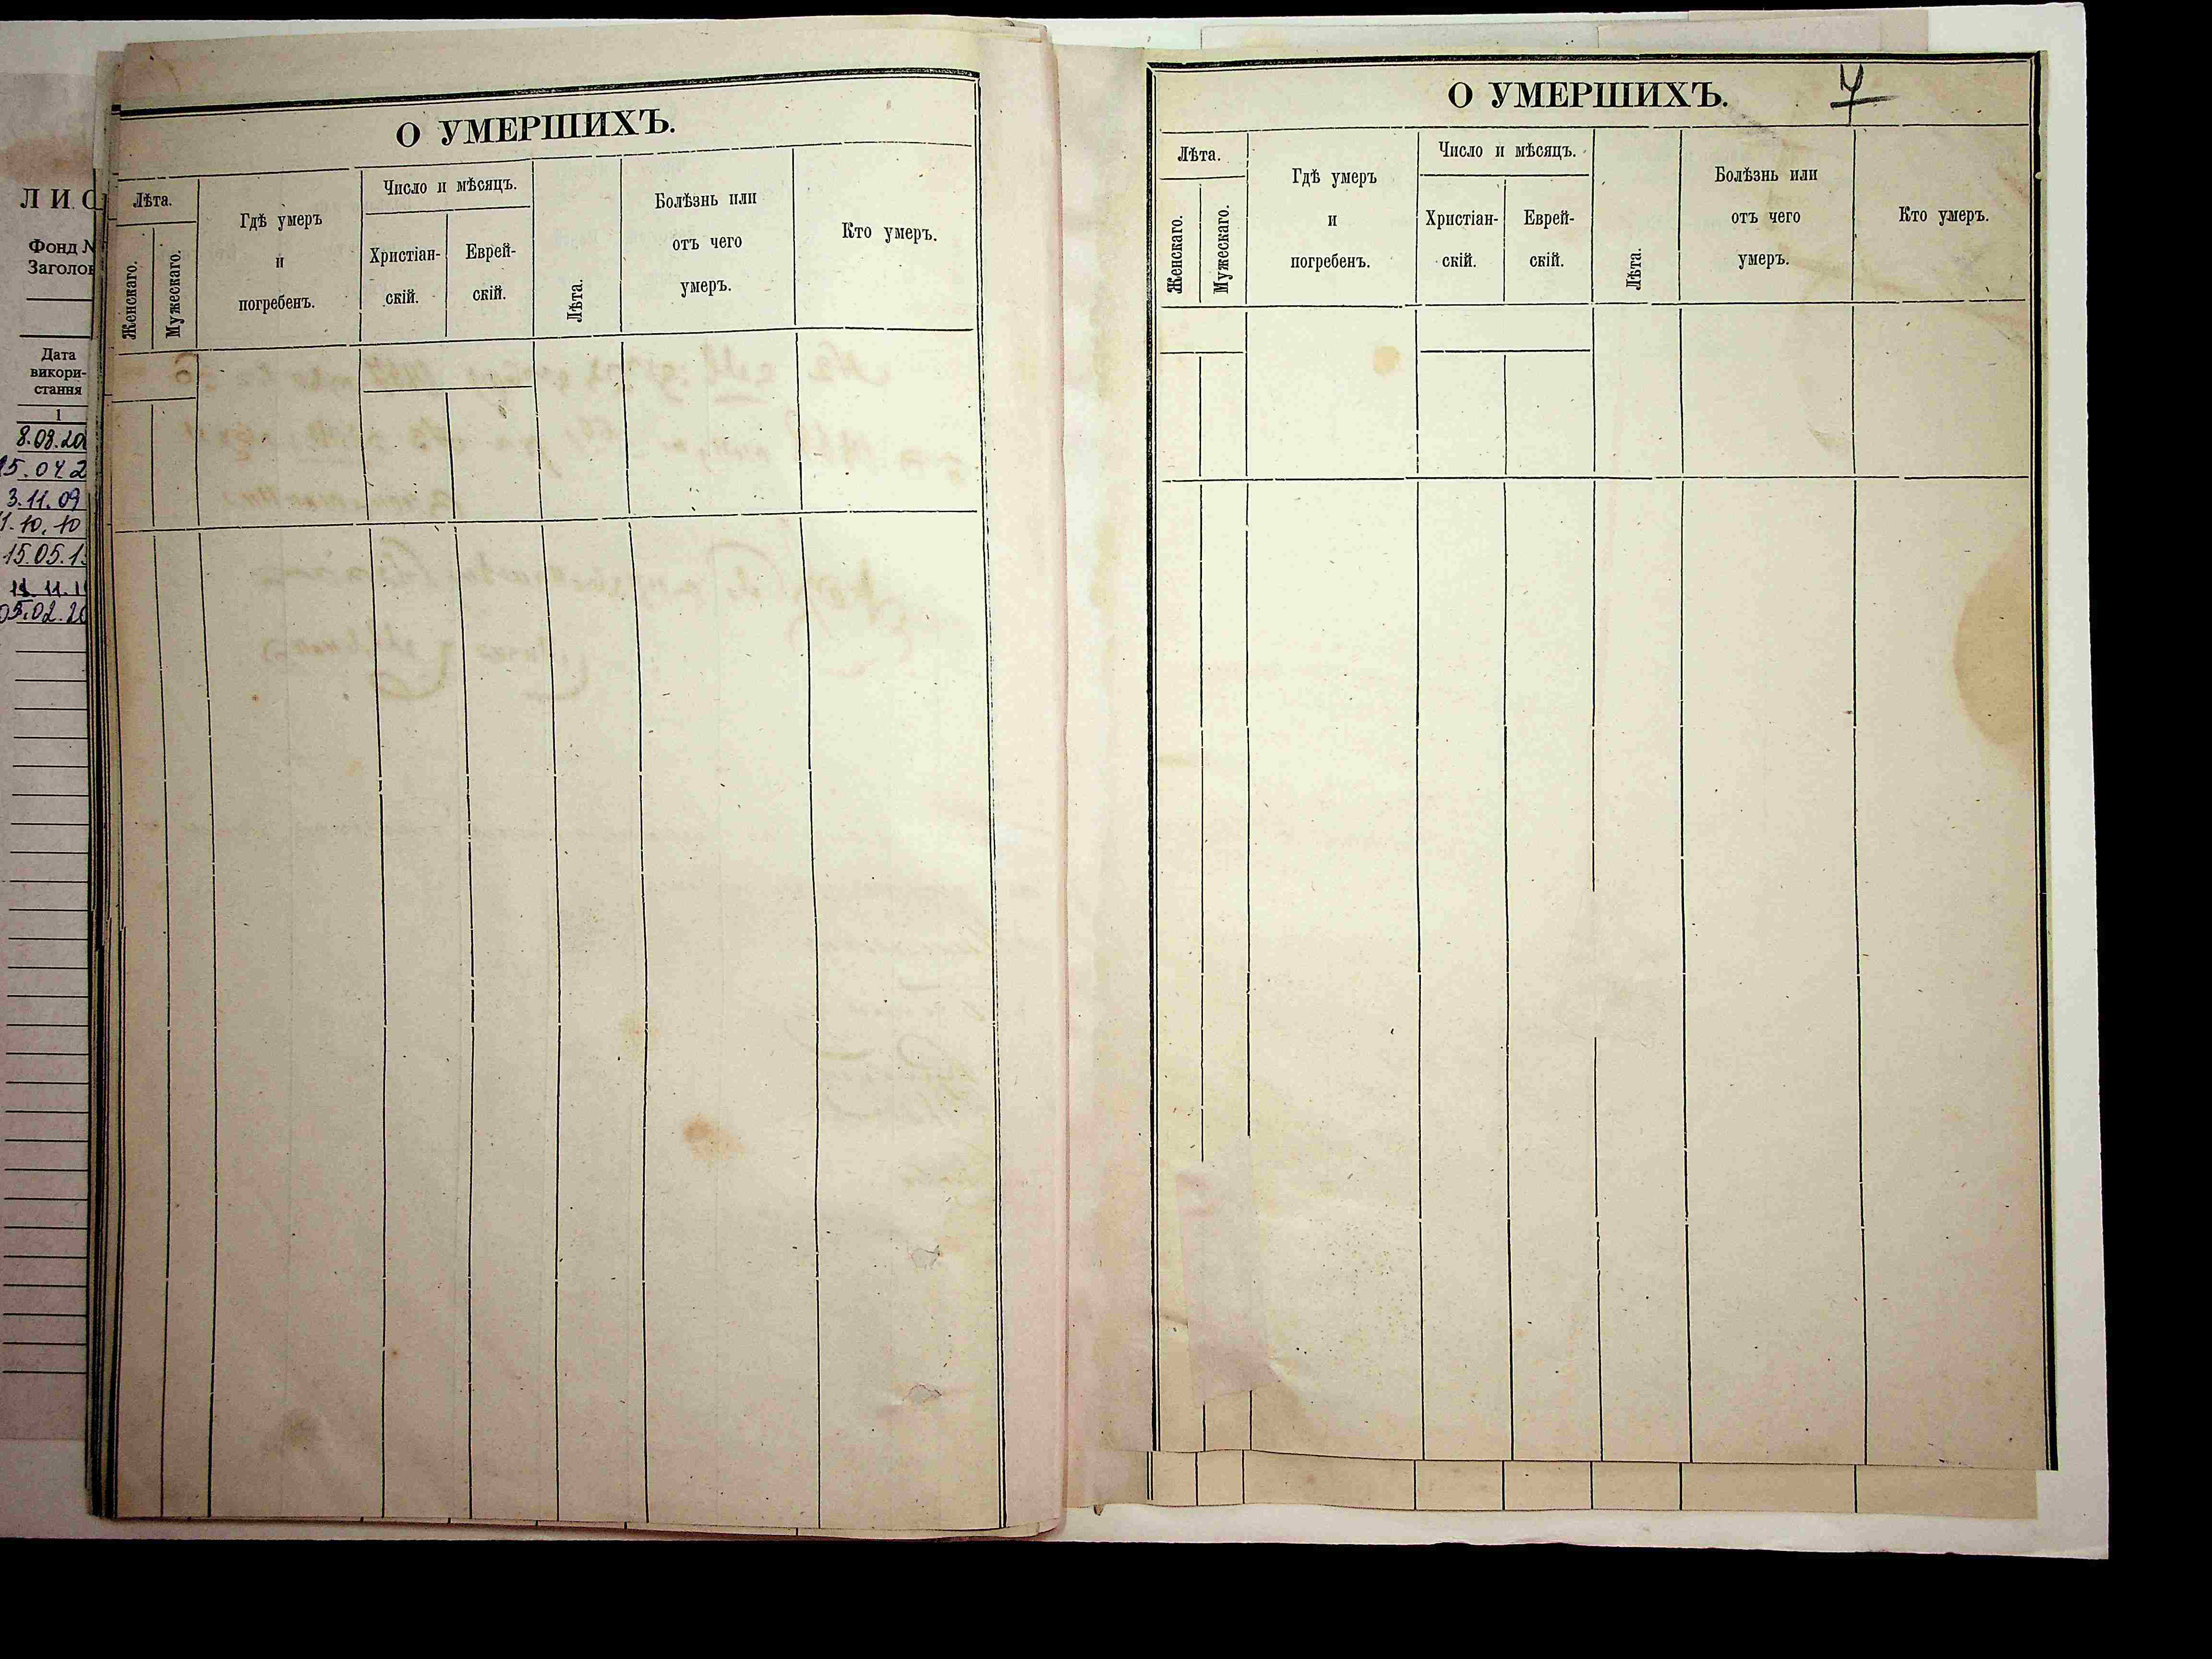 ЛИС
Фонд №
Заголов
Дата
викори-
стання
1
8.08.20
15.04.2
3.11.09
1.10.10
15.05.1
11.11.1
05.02.20
О УМЕРШИХЪ.
Лѣта.
Женскаго.
Мужескаго.
Гдѣ умеръ
и
погребенъ.
Число и мѣсяцъ.
Христіан-
скій.
Еврей-
скій.
Лѣта.
Болѣзнь или
отъ чего
умеръ.
Кто умеръ.
О УМЕРШИХЪ.
Лѣта.
Женскаго.
Мужескаго.
Гдѣ умеръ
и
погребенъ.
Число и мѣсяцъ.
Христіан-
скій.
Еврей-
скій.
Лѣта.
Болѣзнь или
отъ чего
умеръ.
Кто умеръ.